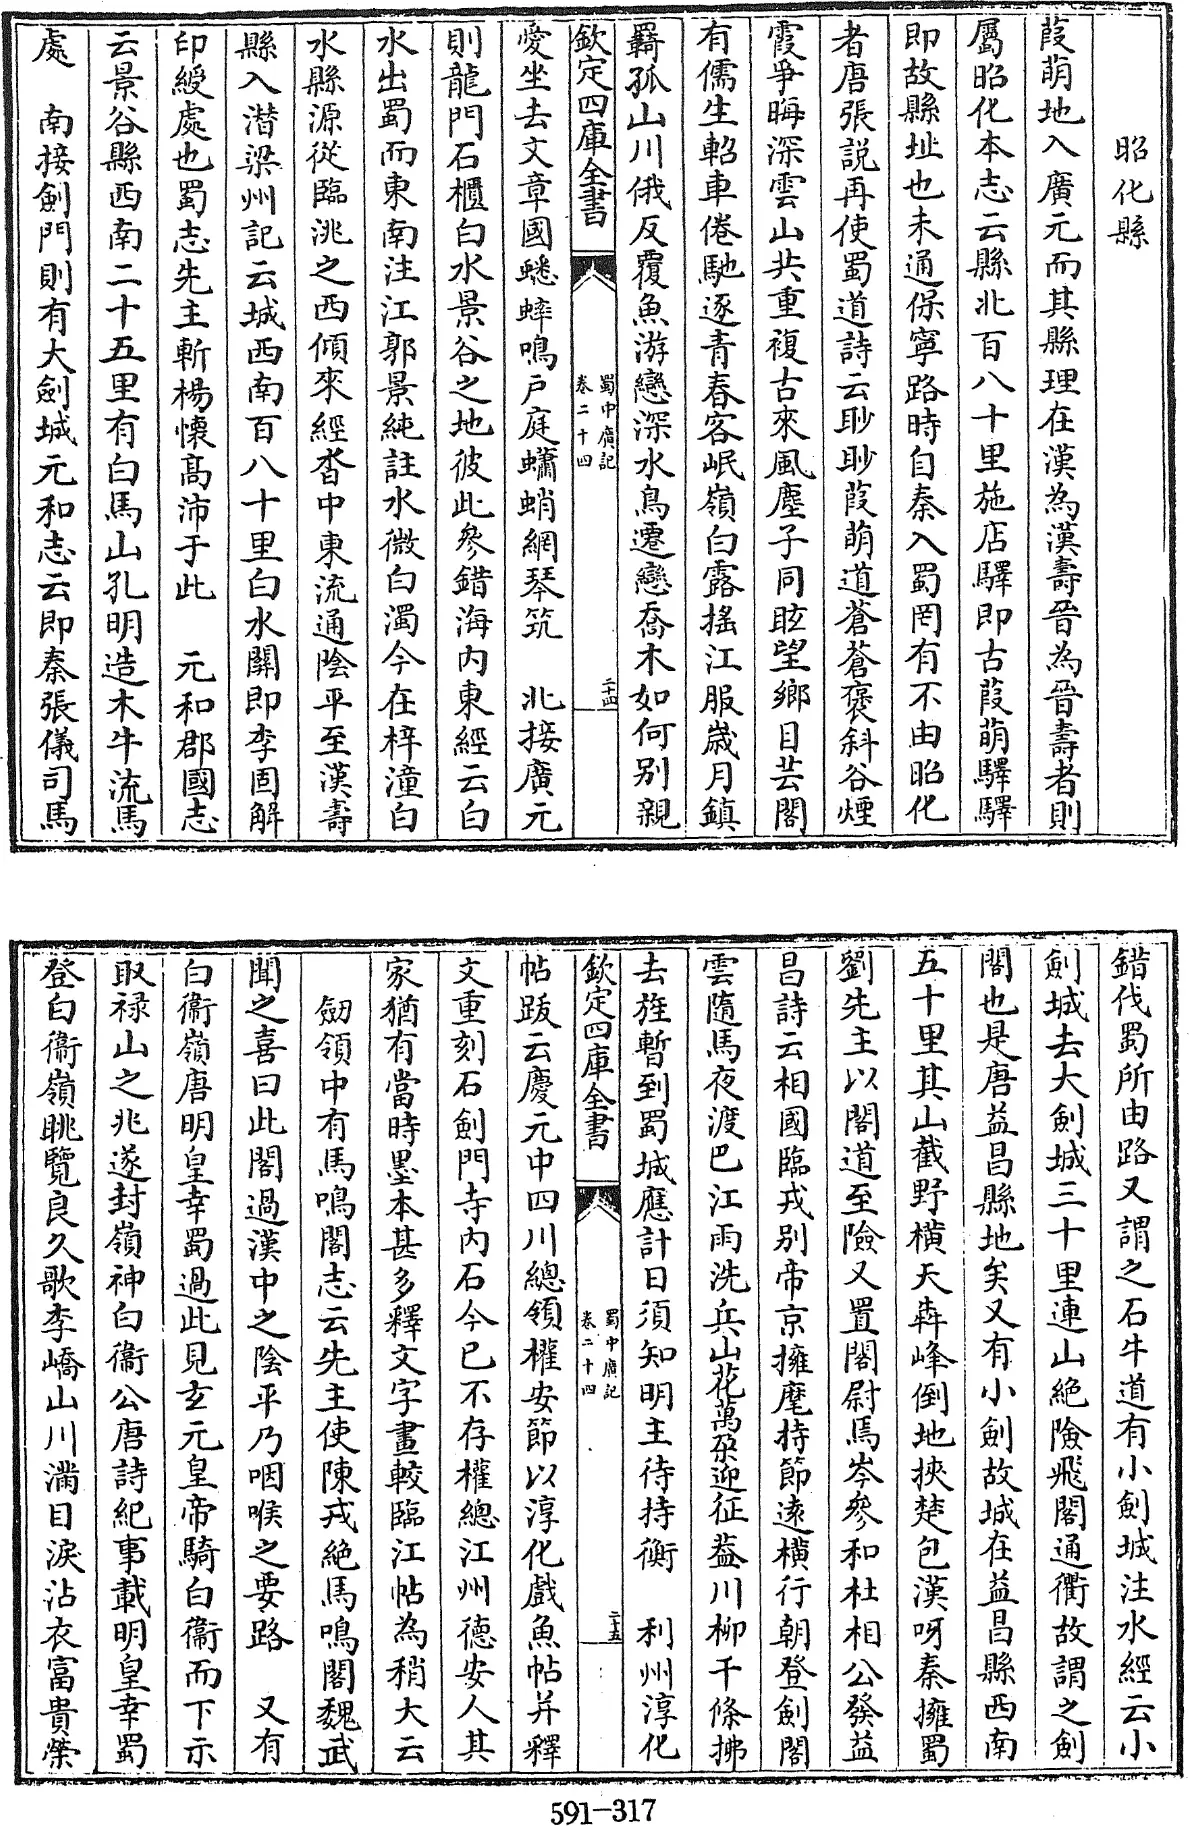 昭化縣
葭萌地入廣元而其縣理在漢為漢壽晉為晉壽者則
屬昭化本志云縣北百八十里施店驛即古葭萌驛驛
即故縣址也未通保寧路時自秦入蜀罔有不由昭化
者唐張説再使蜀道詩云眇眇葭萌道蒼蒼褒斜谷煙
霞爭晦深雲山共重複古來風塵子同眩望鄉目芸閣
有儒生軺車倦馳逐青春客岷嶺白露揺江服歲月鎮
羇孤山川俄反覆魚游戀深水鳥遷戀喬木如何别親
欽定四庫全書
蜀中廣記
卷二十四
二十四
愛坐去文章國蟋蟀鳴戸庭蠨蛸網琴筑 北接廣元
則龍門石櫃白水景谷之地彼此參錯海内東經云白
水出蜀而東南注江郭景純註水微白濁今在梓潼白
水縣源從臨洮之西傾來經沓中東流通陰平至漢壽
縣入潛梁州記云城西南百八十里白水關即李固解
印綬處也蜀志先主斬楊懷髙沛于此 元和郡國志
云景谷縣西南二十五里有白馬山孔明造木牛流馬
處 南接劍門則有大劍城元和志云即秦張儀司馬
錯伐蜀所由路又謂之石牛道有小劍城注水經云小
劍城去大劍城三十里連山絶險飛閣通衢故謂之劍
閣也是唐益昌縣地矣又有小劍故城在益昌縣西南
五十里其山截野横天犇峰倒地挾楚包漢呀秦擁蜀
劉先主以閣道至險又置閣尉焉岑參和杜相公發益
昌詩云相國臨戎别帝京擁麾持節逺横行朝登劍閣
雲隨馬夜渡巴江雨洗兵山花萬朶迎征蓋川柳千條拂
去旌暫到蜀城應計日須知明主待持衡 利州淳化
欽定四庫全書
蜀中廣記
卷二十四
二十五
帖跋云慶元中四川總領權安節以淳化戲魚帖并釋
文重刻石劍門寺内石今已不存權總江州德安人其
家猶有當時墨本甚多釋文字畫較臨江帖為稍大云
劒領中有馬鳴閣志云先主使陳戎絶馬鳴閣魏武
聞之喜曰此閣過漢中之陰平乃咽喉之要路 又有
白衞嶺唐明皇幸蜀過此見玄元皇帝騎白衞而下示
取禄山之兆遂封嶺神白衞公唐詩紀事載明皇幸蜀
登白衞嶺眺覽良久歌李嶠山川滿目淚沾衣富貴榮
591-317